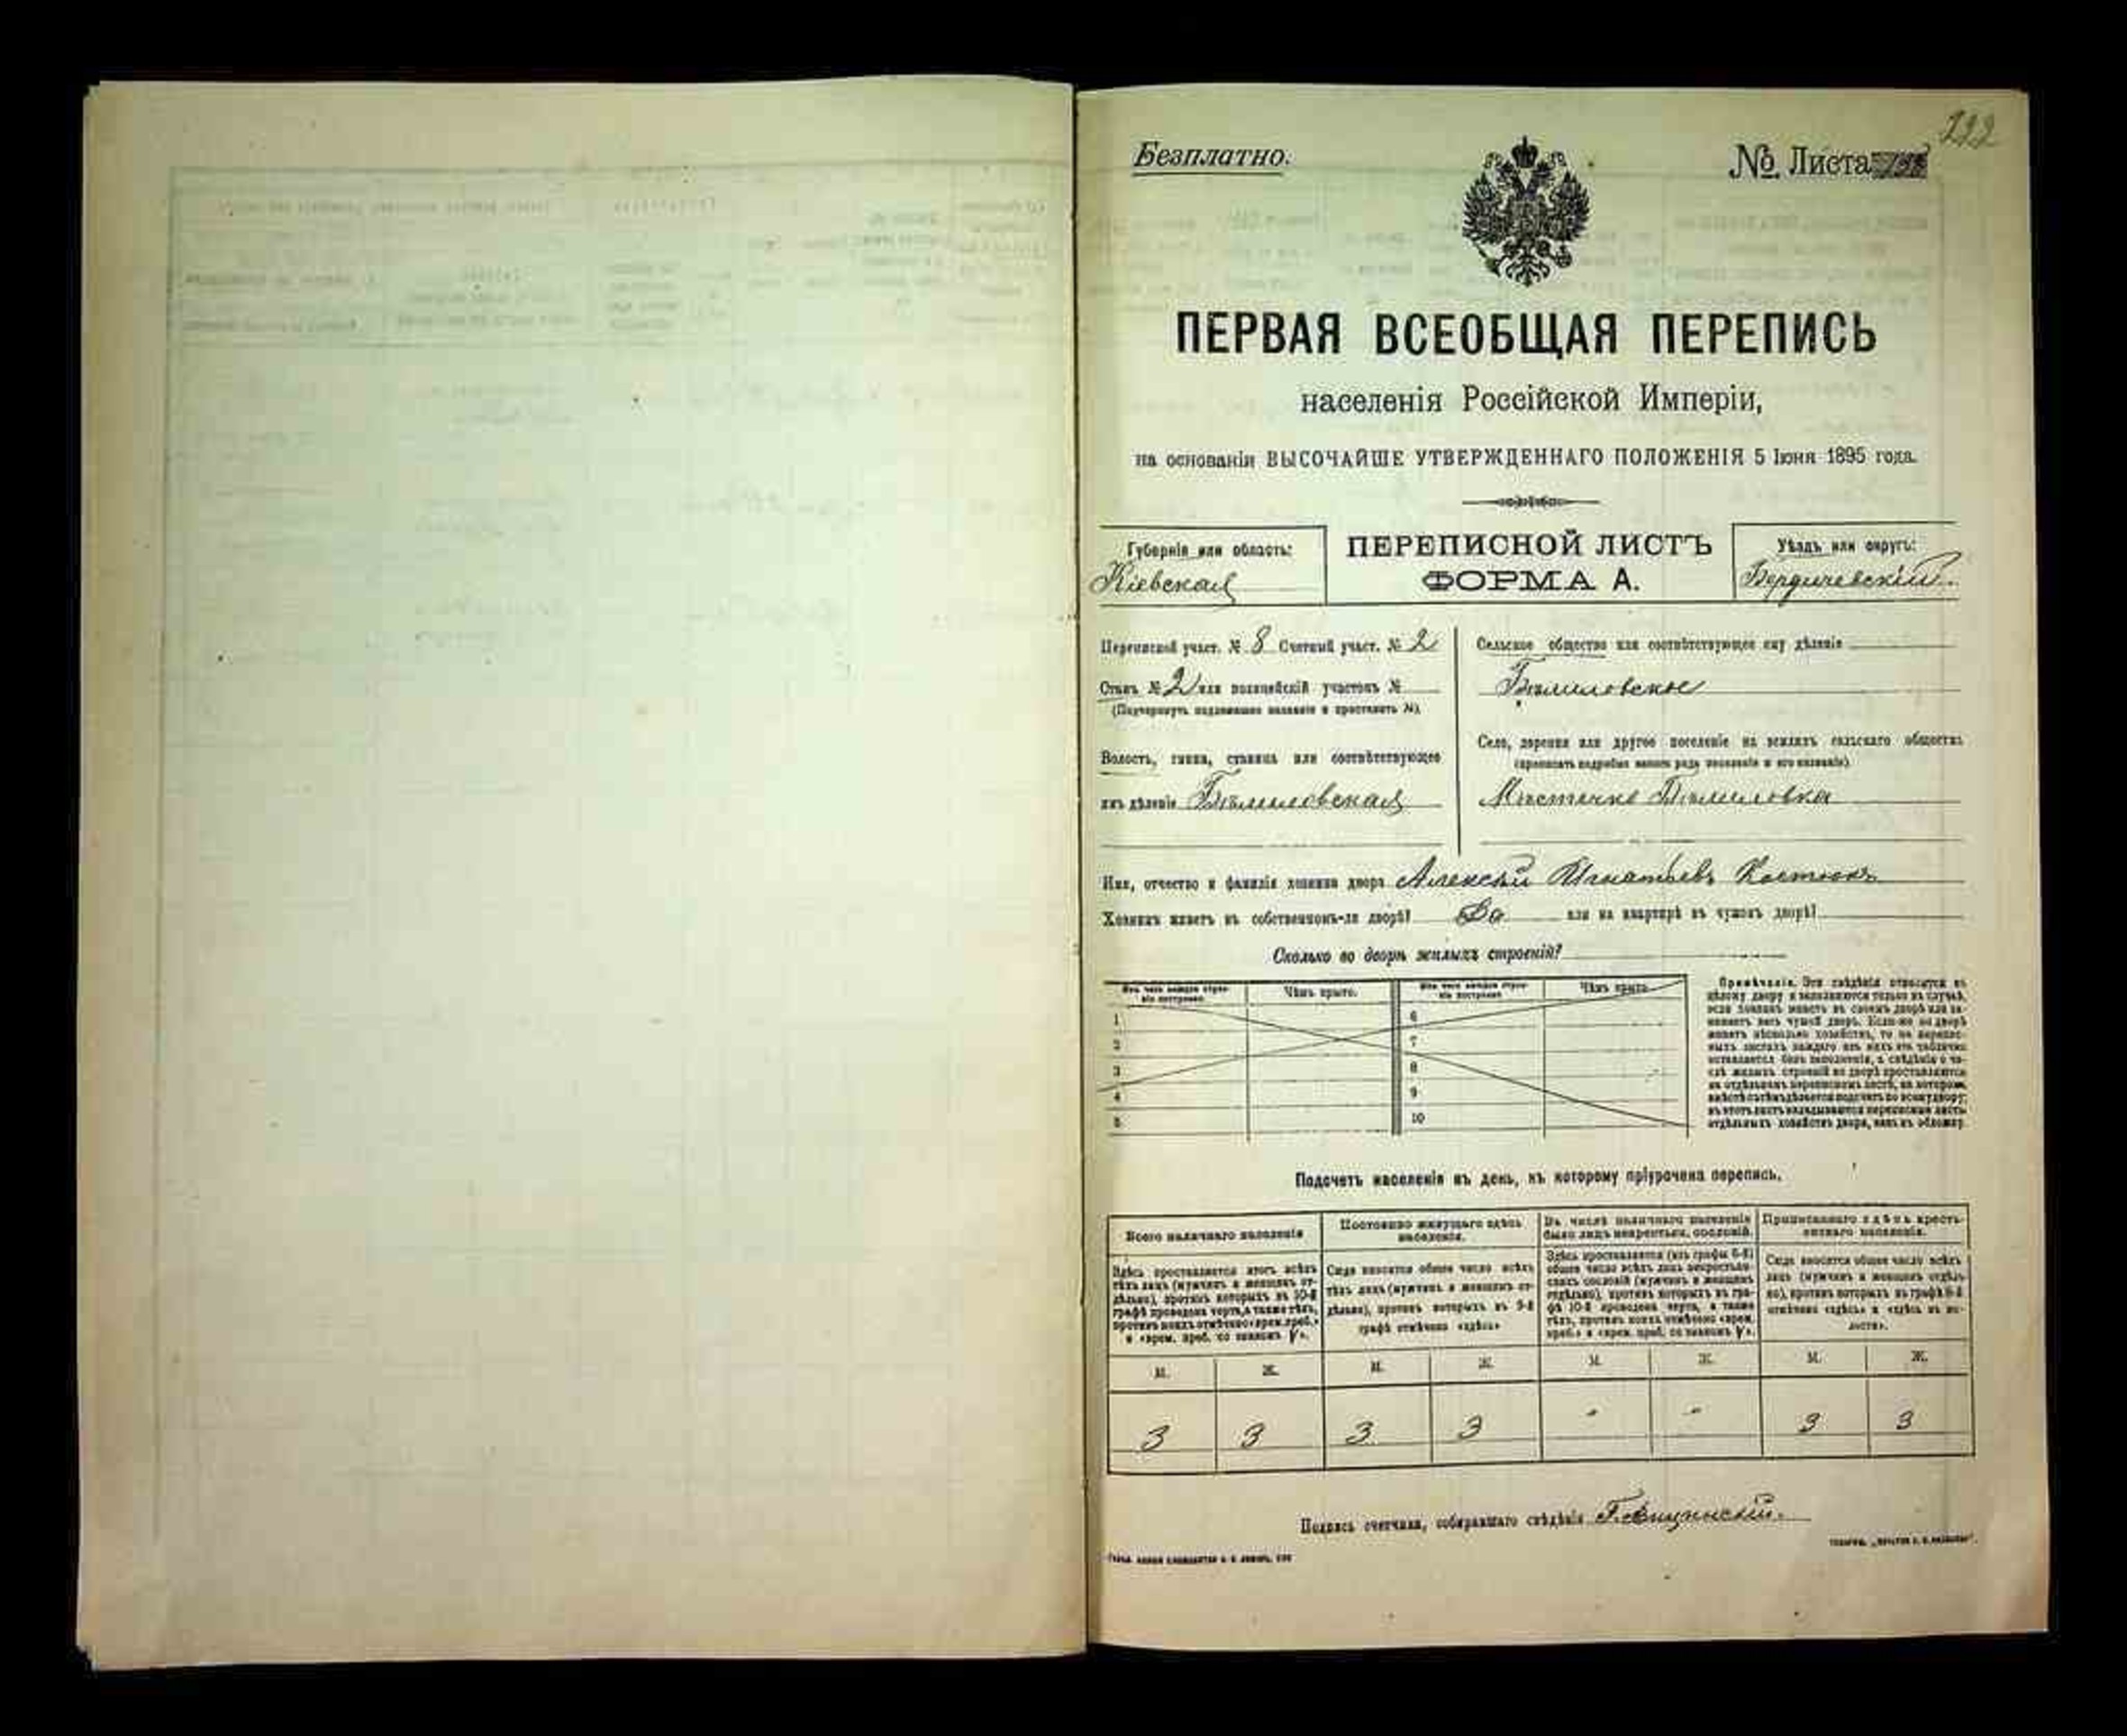 222
Безплатно.
№ Листа
ПЕРВАЯ ВСЕОБЩАЯ ПЕРЕПИСЬ
населенія Россійской Имперіи,
на основаніи ВЫСОЧАЙШЕ УТВЕРЖДЕННАГО ПОЛОЖЕНІЯ 5 Іюня 1895 года.
Губернія или область:
Кіевская
ПЕРЕПИСНОЙ ЛИСТЪ
ФОРМА А.
Уѣздъ или округъ:
Бердичевскій.
Переписной участ. № 8 Счетный участ. № 2
Станъ № 2 или полицейскій участокъ №
(Подчеркнуть подлежащее названіе и проставить №).
Волость, гмина, станица или соотвѣтствующее
имъ дѣленіе Бѣлиловская
Сельское общество или соотвѣтствующее ему дѣленіе
Бѣлиловское
Село, деревня или другое поселеніе на земляхъ сельскаго общества
(прописать подробно какого рода поселеніе и его названіе).
Мѣстечко Бѣлиловка
Имя, отчество и фамилія хозяина двора Алексѣй Игнатьевъ Костюкъ
Хозяинъ живетъ въ собственномъ-ли дворѣ? Да или на квартирѣ въ чужомъ дворѣ?
Сколько во дворѣ жилыхъ строеній?
Изъ чего каждое строеніе построено.
Чѣмъ крыто.
Изъ чего каждое строеніе построено.
Чѣмъ крыто.
1 6
2 7
3 8
4 9
5 10
Примѣчаніе. Эти свѣдѣнія относятся къ
цѣлому двору и заполняются только въ случаѣ,
если хозяинъ живетъ въ своемъ дворѣ или за-
нимаетъ весь чужой дворъ. Если-же во дворѣ
живетъ нѣсколько хозяйствъ, то на перепис-
ныхъ листахъ каждаго изъ нихъ эта табличка
оставляется безъ заполненія, а свѣдѣнія о чи-
слѣ жилыхъ строеній во дворѣ проставляются
на отдѣльномъ переписномъ листѣ, на которомъ
вмѣстѣ съ тѣмъ дѣлается подсчетъ по всему двору;
въ этотъ листъ вкладываются переписные листы
отдѣльныхъ хозяйствъ двора, какъ въ обложку.
Подсчетъ населенія въ день, къ которому пріурочена перепись.
Всего наличнаго населенія
Здѣсь проставляется итогъ всѣхъ
тѣхъ лицъ (мужчинъ и женщинъ от-
дѣльно), противъ которыхъ въ 10-й
графѣ проведена черта, а также тѣхъ,
противъ коихъ отмѣчено «врем. преб.»
и «врем. преб. со знакомъ V».
Постоянно живущаго здѣсь
населенія.
Сюда вносится общее число всѣхъ
тѣхъ лицъ (мужчинъ и женщинъ от-
дѣльно), противъ которыхъ въ 9-й
графѣ отмѣчено «здѣсь»
Въ числѣ наличнаго населенія
было лицъ некрестьян. сословій.
Здѣсь проставляется (изъ графы 6-й)
общее число всѣхъ лицъ некрестьян-
скихъ сословій (мужчинъ и женщинъ
отдѣльно), противъ которыхъ въ гра-
фѣ 10-й проведена черта, а также
тѣхъ, противъ коихъ отмѣчено «врем.
преб.» и «врем. преб. со знакомъ V».
Приписаннаго здѣсь кресть-
янскаго населенія.
Сюда вносится общее число всѣхъ
лицъ (мужчинъ и женщинъ отдѣль-
но), противъ которыхъ въ графѣ 8-й
отмѣчено «здѣсь» и «здѣсь въ во-
лости».
М. Ж. М. Ж. М. Ж. М. Ж.
3 3 3 3 " " 3 3
Подпись счетчика, собиравшаго свѣдѣнія